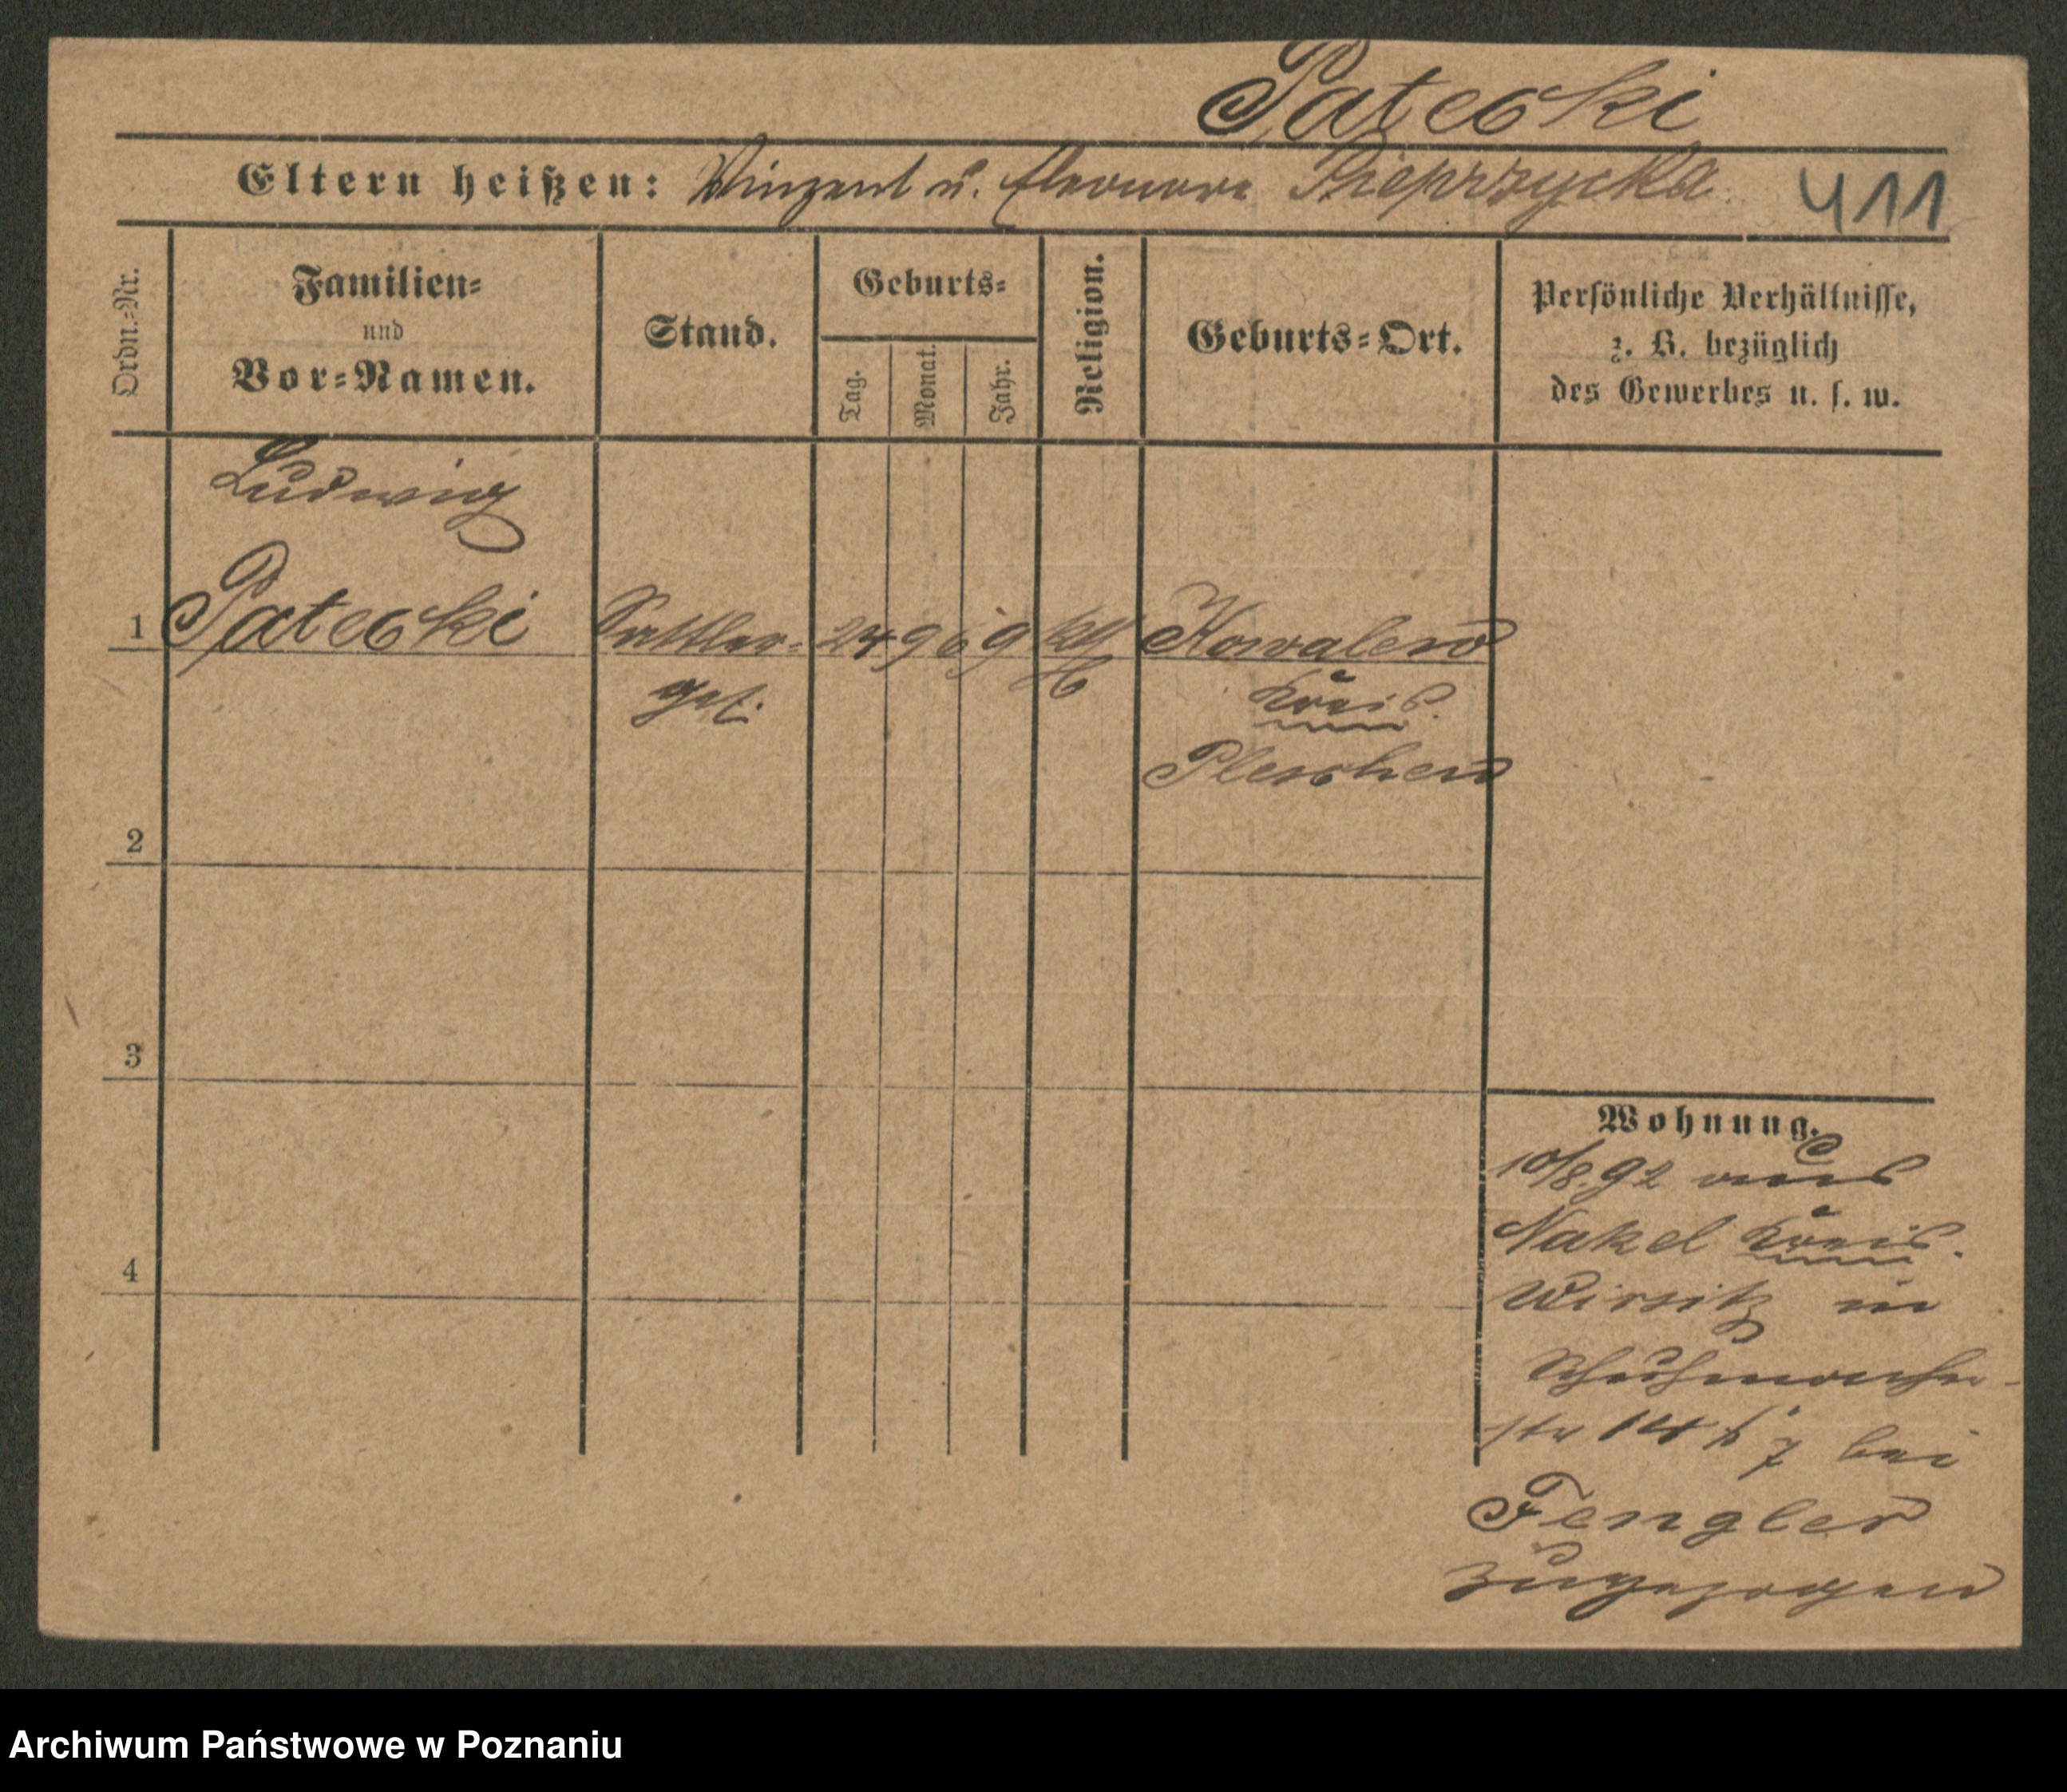 Patecki
Eltern heißen: Vinzent u. Eleonore Pieprzycka
411
Ordn.-Nr.
Familien-
und
Vor-Namen.
Stand.
Geburts-
Tag.
Monat.
Jahr.
Religion.
Geburts-Ort.
Persönliche Verhältnisse,
z. B. bezüglich
des Gewerbes u. s. w.
Ludwig
1 Patecki Sattler- 24 9 69 Kowalew
ges. Kreis
Pleschen
2
3
4
Wohnung.
10/8. 92 aus
Nakel Kreis
Wirsitz in
Schuhmacher-
str 14 bei
Fengler
zugezogen
Archiwum Państwowe w Poznaniu